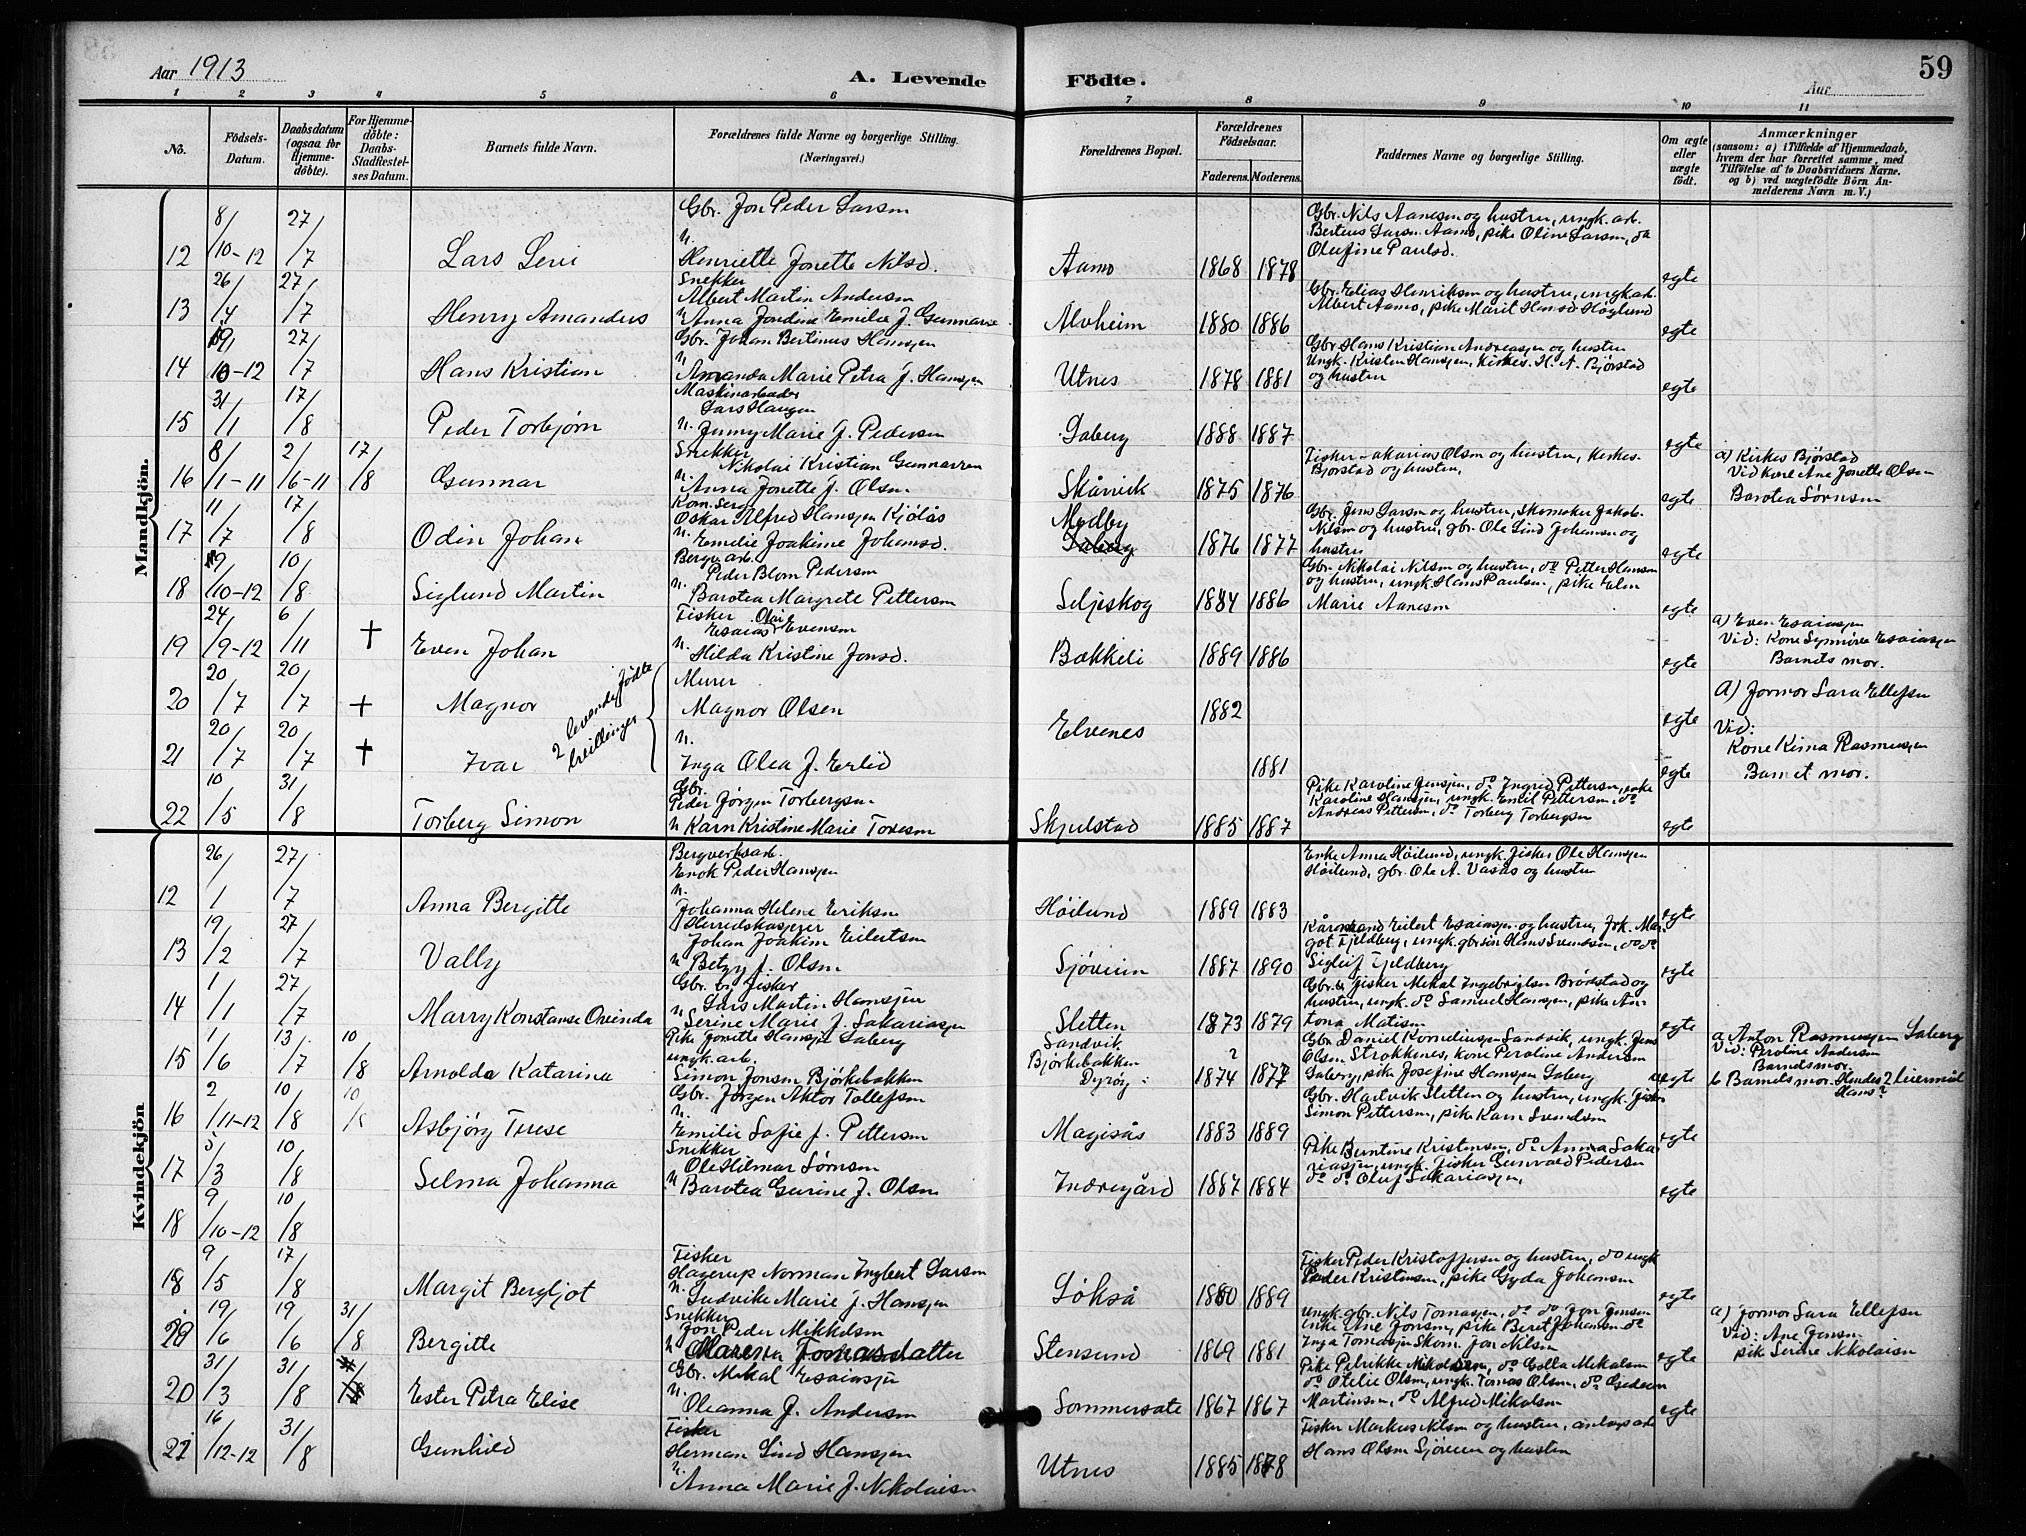 Aar 1913
A. Levende Födte.
59
Aar
1 2 3 4 5 6 7 8 9 10 11
No.
Födsels-Datum.
Daabsdatum (ogsaa for Hjemmedöbte).
For Hjemmedöbte: Daabs-Stadfæstelses Datum.
Barnets fulde Navn.
Forældrenes fulde Navne og borgerlige Stilling. (Næringsvei.)
Forældrenes Bopæl.
Forældrenes Födselsaar.
Faderens. Moderens.
Faddernes Navne og borgerlige Stilling.
Om ægte eller uægte födt.
Anmærkninger
(saasom: a) i Tilfælde af Hjemmedaab, hvem der har forrettet samme, med Tilföielse af to Daabsvidners Navne, og b) ved uægtefödte Börn Anmelderens Navn m. V.)
Mandkjön.
12 8/10-12 27/7 Lars Levi
Gbr. Jon Peder Larsen
h. Henriette Jonette Nilsd.
Aamo 1868 1878
Gbr. Nils Aanesen og hustru, ungk. arb.
Berteus Larsn. Aamo, pike Oline Larsen, do
Olufine Paulsd.
egte
13 26/4 27/7 Henry Amandus
Snekker
Albert Martin Andersen
h. Anna Jordine Emilie J. Gunnarsen
Alvheim 1880 1886
Gbr. Elias Henriksen og hustru, ungk. arb.
Albert Aamo, pike Marit Hansd Höglund
egte
14 19/10-12 27/7 Hans Kristian
Gbr. Johan Bertinus Hansen
h. Amanda Marie Petra J. Hansen
Utnes 1878 1881
Gbr Hans Kristian Andreassen og hustru
Ungk. Kristen Hansen, Kirkes. H. A. Bjørstad
og hustru
egte
15 31/1 17/8 Peder Torbjørn
Maskinarbeider
Lars Haugen
h. Jenny Marie J. Pedersen
Laberg 1888 1887
egte
16 8/1-11 2/6-11 17/8 Gunnar
Snekker
Nikolai Kristian Gunnarsen
h. Anna Jonette J. Olsen
Skårvik 1875 1876
Fisker Sakarias Olsen og hustru, kirkes.
Bjørstad og hustru,
egte
a) Kirkes Bjørstad
Vid kone Ane Jonette Olsen
Barotea Sørnsen
17 11/7 17/8 Odin Johan
Kom. Serg.
Oskar Alfred Hansen Kjølås
h. Emilie Joakime Johansd.
Medby
Laberg
1876 1877
Gbr. Jens Larsen og hustru, Skomaker Jakob
Nilsen og hustru, gbr. Ole Lind Johansen og
hustru
egte
18 19/10-12 10/8 Siglund Martin
Bergv. arb.
Peder Blom Pedersen
h. Barotea Margrete Pettersen
Seljeskog 1884 1886
Gbr. Nikolai Nilsen og hustru, do Petter Hansen
og hustru, ungk. Hans Paulsen, pike Elen
Marie Aanesen
egte
19 24/9-12 6/11 † Even Johan
Fisker
Esaias Olai Evensen
h. Hilda Kristine Jonsd.
Bakkeli 1889 1886
egte
a) Even Esaiassen
Vid: Kone Synnøve Esaiassen
Barnets mor.
20 20/7 20/7 † Magnor
2 levende fødte trillinger
Murer
Magnor Olsen
Elvenes 1882
egte
a) Jormor Sara Ellefsen
Vid:
21 20/7 20/7 † Ivar
h. Inga Olea J. Erlid
1881
egte
Kone Kima Rasmussen
Barnet mor.
22 10/5 31/8 Torberg Simon
Gbr.
Peder Jørgen Torbergsen
h Karn Kristine Marie Toresen
Skjelstad 1885 1887
Pike Karoline Jensen, do Ingrid Pettersen, enke
Karoline Hansen, ungk. Emil Pettersen, do
Andreas Pettersen, do Torberg Torbergsen
egte
Kvindekjön
12 26/1 27/7 Anna Bergitte
Bergverksarb.
Enok Peder Hansen
h. Johanna Helene Eriksen
Höilund 1889 1883
Enke Anna Höilund, ungk. fisker Ole Hansen
Höilund, gbr. Ole A. Vasås og hustru
egte
13 19/2 27/7 Vally
Herredskasserer
Johan Joakim Eilertsen
h Betzy J. Olsen
Sjøveien 1887 1890
Kårmand Eilert Esaiassen og hustru, frk. Margot Fjeldberg, ungk. gbrsøn Hans Svendsen, do do
Sigleif Fjeldberg
egte
14 1/1 27/7 Marry Konstanse Oveinda
Gbr. og fisker
Lars Martin Hansen
h Serine Marie J. Sakariassen
Sletten 1873 1879
Gbr. & fisker Mikal Ingebrigtsen Brødstad og
hustru, ungk. do Samuel Hansen, pike Antona Matisen
egte
15 1/6 13/7 10/8 Arnolda Katarina
Pike Jonette Hansen Laberg
ungk. arb.
Simon Jonsen Bjørkebakken
Sandvik
Bjørkebakken
Dyrøy
1874 1877
Gbr. Daniel Kornelius Sandvik, ungk. Jens
Olsen Strokkenes, kone Peroline Andersen
Laberg, pike Josefine Hansen Laberg
uegte
a Anton Rasmussen Laberg
Vid: Peroline Andersen
Barnets mor.
b Barnets mor. Hendes 2 leiermål
Hans?
16 2/11-12 10/8 10/8 Asbjørg Terese
Gbr. Jørgen Aktor Tollefsen
h. Emilie Sofie J. Pettersen
Magisås 1883 1889
Gbr. Hartvik Sletten og hustru, ungk. fisker
Simon Pettersen, pike Karn Svendsen
egte
17 5/3 10/8 Selma Johanna
Snekker
Ole Hilmar Sørnsen
h. Barotea Gurine J. Olsen
Indregård 1887 1884
Pike Berntine Kristensen, do Anna Sakariassen, ungk. fisker Gunvald Pedersen
do do Oluf Sakariassen,
egte
18 9/10-12 10/8
18 9/5 17/8 Margit Bergljot
Fisker
Hagerup Norman Ingbert Larsen
h. Ludvikke Marie J. Hansen
Løkså 1880 1889
Fisker Peder Kristoffersen og hustru, do ungk
Peder Kristensen, pike Gyda Johansen
egte
29 19/6 19/6 31/8 Bergitte
Snekker
Jon Peder Mikkelsen
h Marena Tomasdatter
Stensund 1869 1881
Ungk. gbr. Nils Tomassen, do do Jon Jensen
enke Ane Jonsen, pike Beret Johansen do
Inga Tomassen Skom. Jon Nilsen
egte
a) Jormor Sara Ellefsen
Vid: Ane Jonsen
pike Serine Nikolaisen
20 31/3 31/8 Ester Petra Elise
Gbr. Mikal Esaiassen
h. Oleanna J. Andersen
Sommersæte 1867 1867
Pike Petrikke Nikolaisen, do Golla Mikalsen
do Otelie Olsen, ungk. Tomas Olsen, do Gedeon
Martinsen, do Alfred Mikalsen
egte
22 16/12-12 31/8 Gunhild
Fisker
Herman Lind Hansen
h. Anna Marie J. Nikolaisen
Utnes 1885 1878
Fisker Markus Nilsen og hustru, anlægsarb
Hans Olsen Sjøveien og hustru